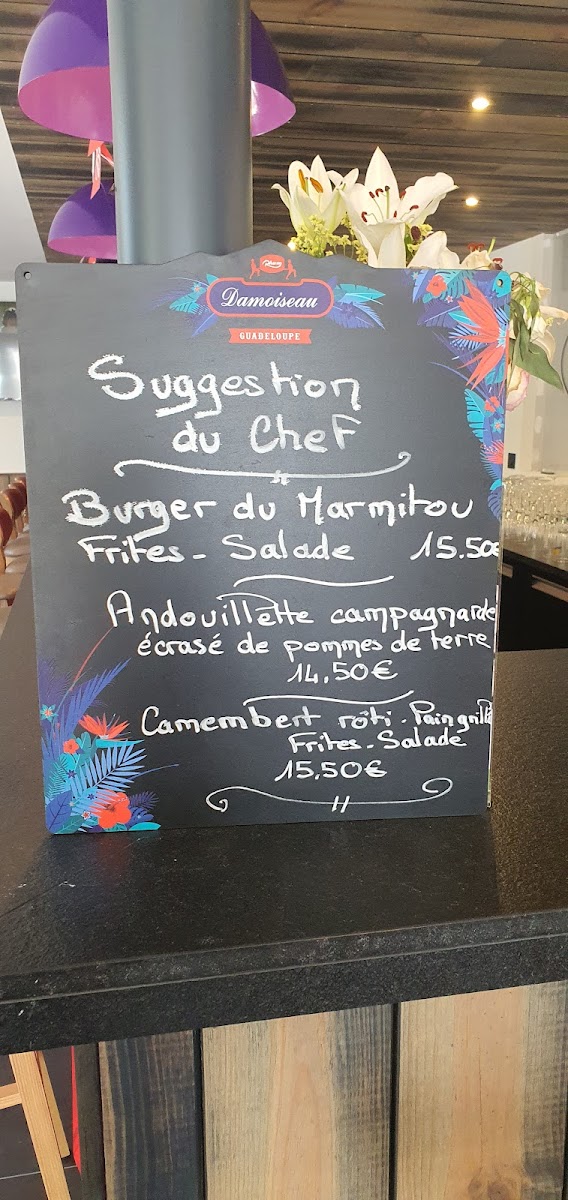 Rhum
Damoiseau
GUADELOUPE
Suggestion
du Chef
Burger du Marmitou
Frites - Salade 15.50€
Andouillette campagnarde
écrasé de pommes de terre
14,50€
Camembert rôti - Pain grillé
Frites - Salade
15,50€